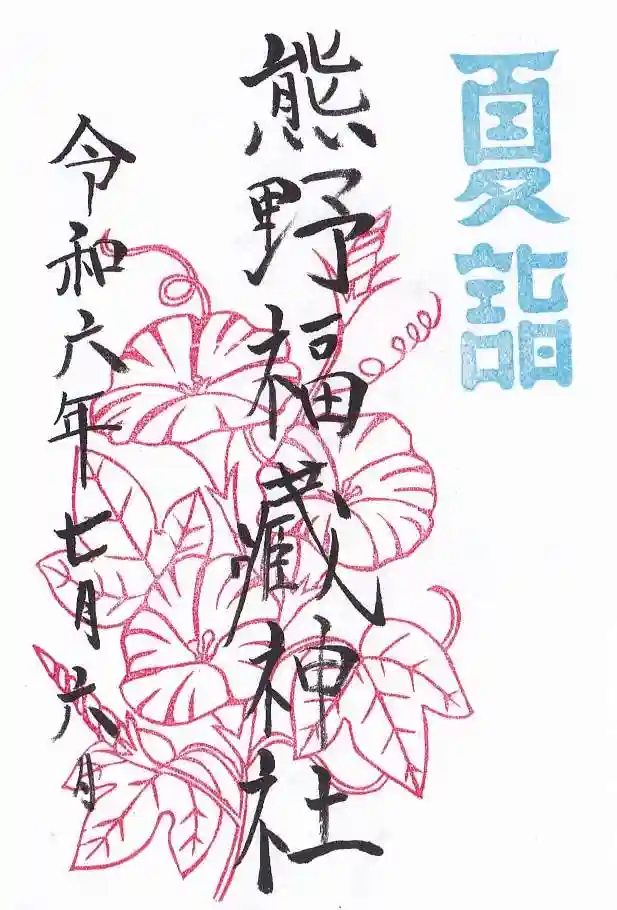 夏詣
熊野福藏神社
令和六年七月六日